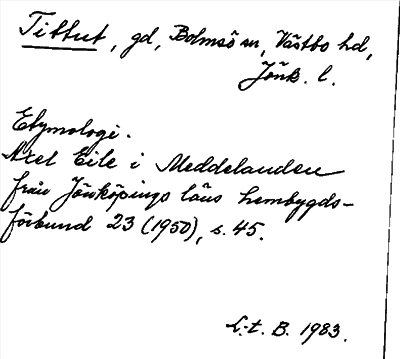 Tittut, gd, Bolmsö sn, Västbo hd,
Jönk. l.
Etymologi.
Axel Eile i Meddelanden
från Jönköpings läns hembygds-
förbund 23 (1950), s. 45.
L.t. B. 1983.